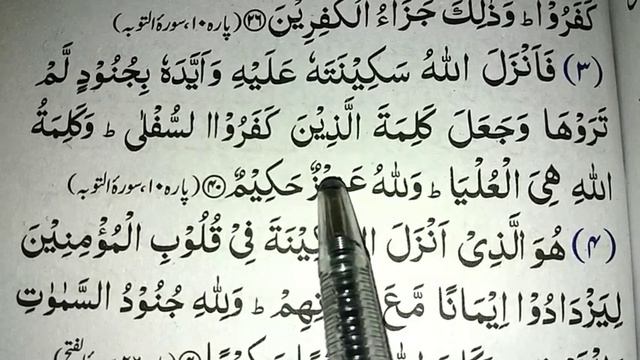 كَفَرُوْا ؕ وَذٰلِكَ جَزَآءُ الْكٰفِرِيْنَ ﴿۲۶﴾ (پارہ ۱۰، سورۂ التوبہ)
(۳) فَاَنْزَلَ اللّٰهُ سَكِيْنَتَهٗ عَلَيْهِ وَاَيَّدَهٗ بِجُنُوْدٍ لَّمْ
تَرَوْهَا وَجَعَلَ كَلِمَةَ الَّذِيْنَ كَفَرُوْا السُّفْلٰى ؕ وَكَلِمَةُ
اللّٰهِ هِىَ الْعُلْيَا ؕ وَاللّٰهُ عَزِيْزٌ حَكِيْمٌ ﴿۴۰﴾ (پارہ ۱۰، سورۂ التوبہ)
(۴) هُوَ الَّذِىْ اَنْزَلَ السَّكِيْنَةَ فِىْ قُلُوْبِ الْمُؤْمِنِيْنَ
لِيَزْدَادُوْا اِيْمَانًا مَّعَ ؕ وَلِلّٰهِ جُنُوْدُ السَّمٰوٰتِ